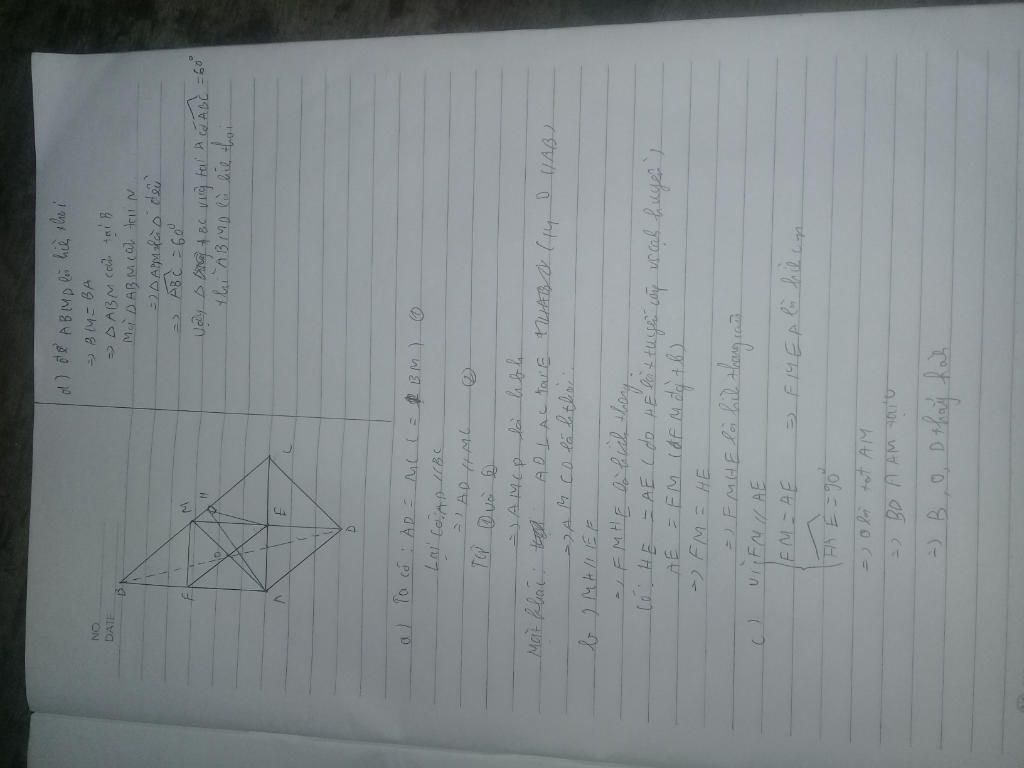 NO.
DATE
B
F
M
H
O
A
E
C
D
a) Ta có: AD = MC (= BM) ①
Lại có: AD // BC
⇒ AD // MC ②
Từ ① và ②
⇒ AMCD là hbh
Mặt khác: AD ⊥ AC tại E
⇒ AMCD là h thoi
b) MH // EF
⇒ FMHE là hình thang
Có: HE = AE (do HE là t tuyến cạnh huyền)
AE = FM
⇒ FM = HE
⇒ FMHE là hình thang cân
c) Vì { FM // AE
FM = AE ⇒ FMEA là hình
= 90°
⇒ O là tđ AM
⇒ BD ∩ AM
⇒ B, O, D thẳng hàng
d) Để ABMD là hình thoi
⇒ BM = BA
⇒ △ABM cân tại B
Mà △ABM cân tại M
⇒ △ABM đều
⇒ ABC = 60°
Vậy △ ABC vuông tại A có ABC = 60°
thì ABMD là hình thoi